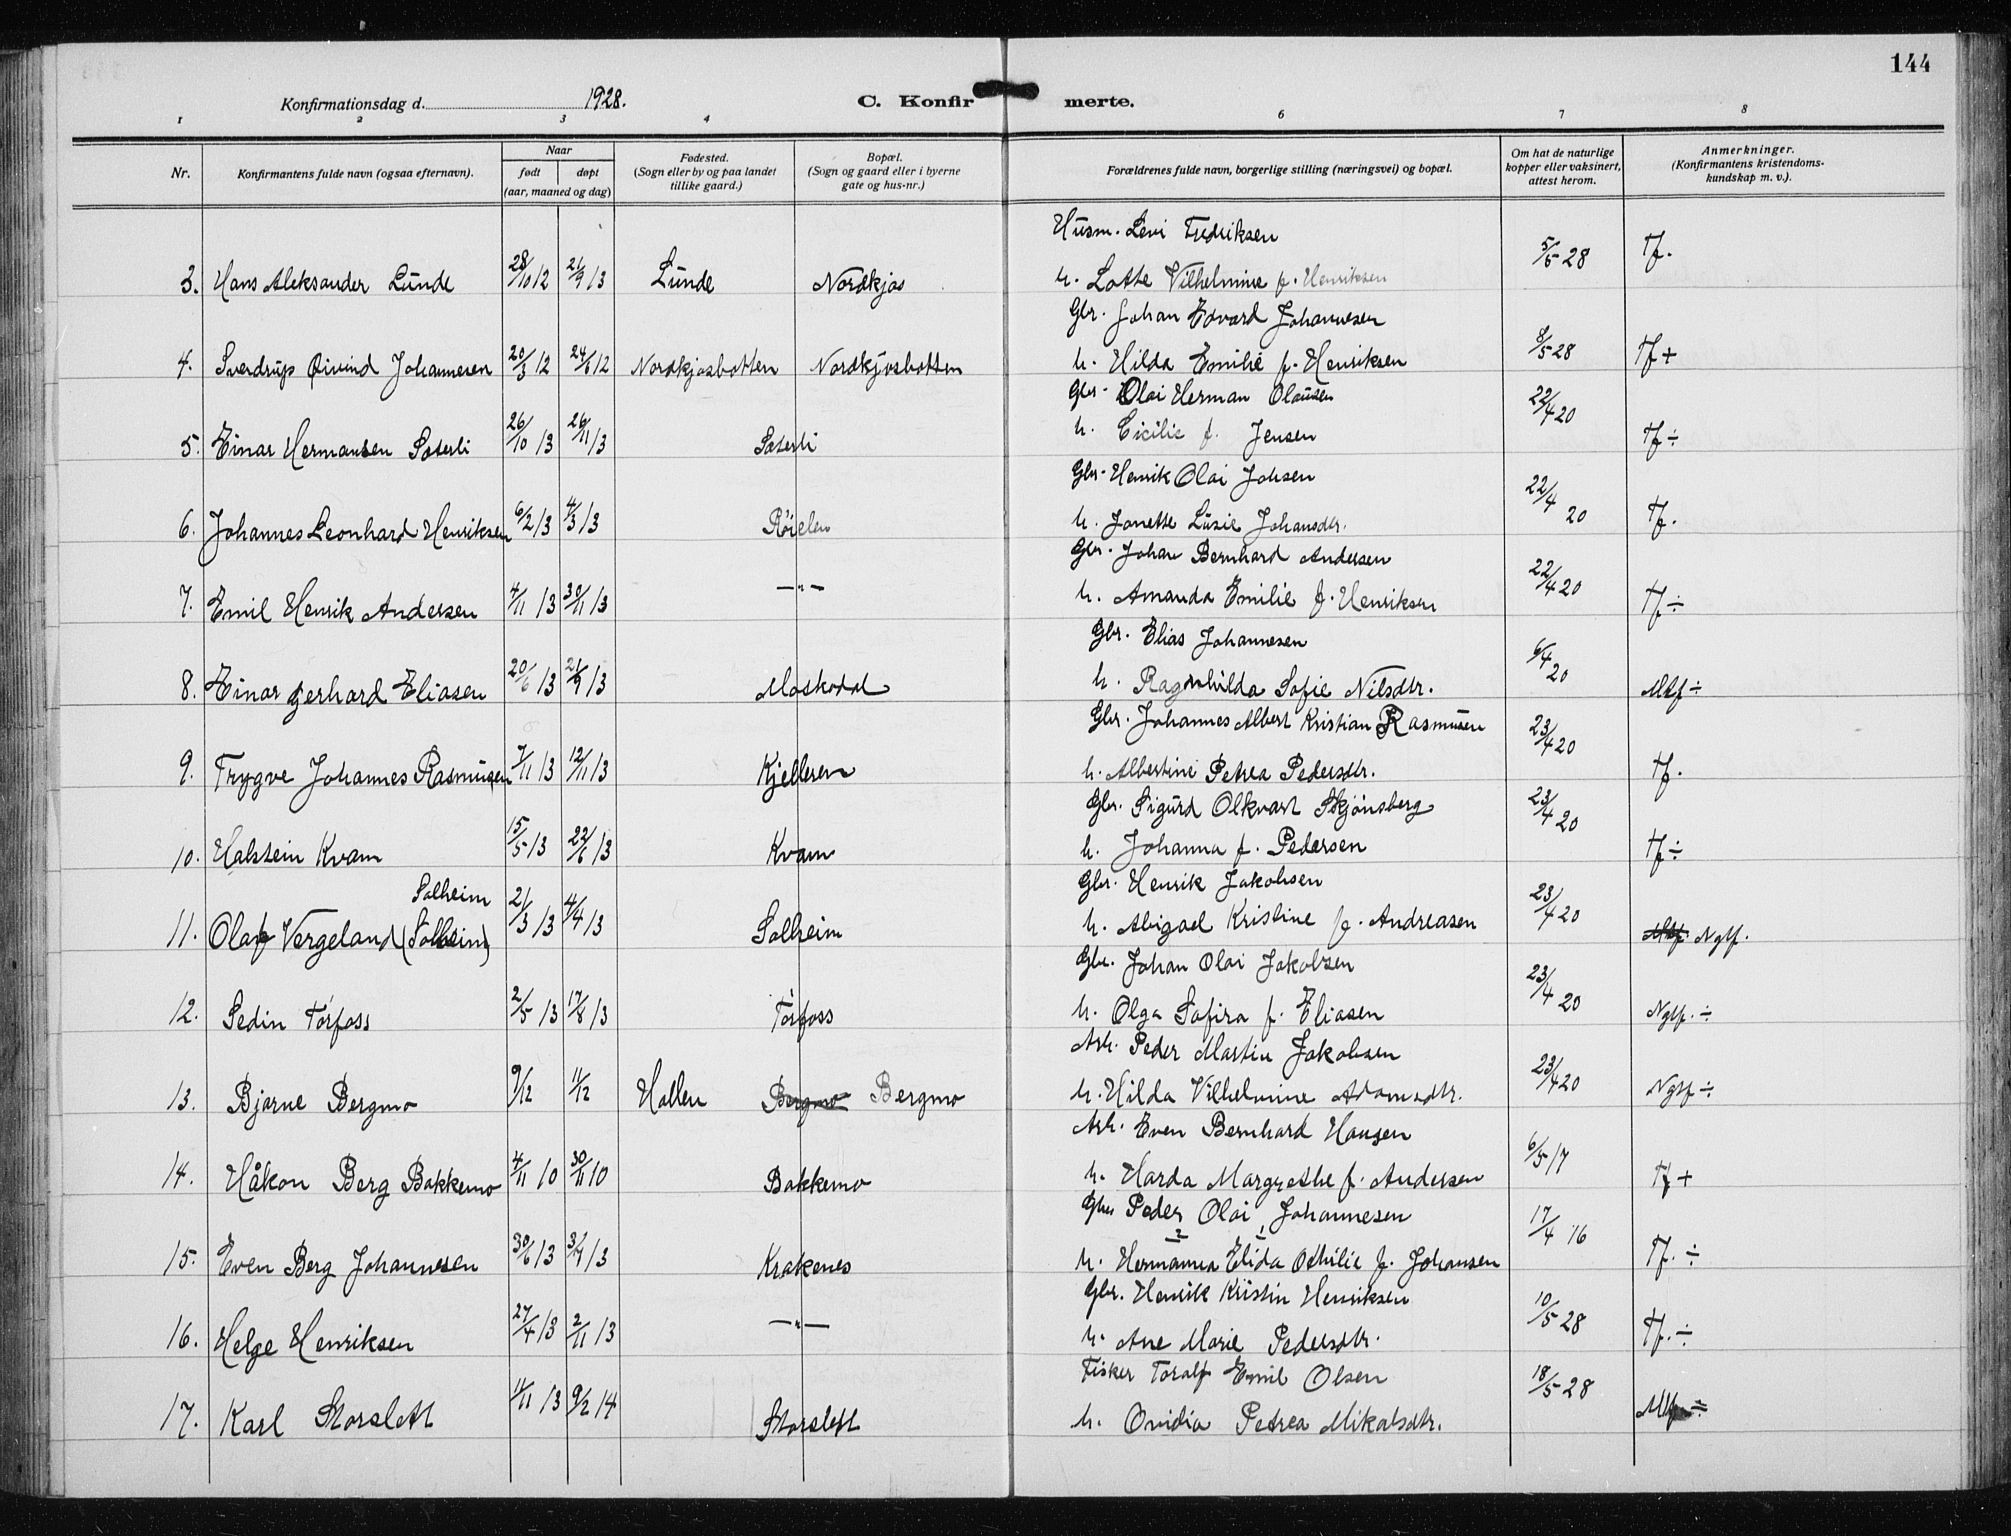 144
Konfirmationsdag d. 1928. C. Konfirmerte.
1 2 3 4 6 7 8
Nr. Konfirmantens fulde navn (ogsaa efternavn). Naar født døpt (aar, maaned og dag) Fødested. (Sogn eller by og paa landet tillike gaard.) Bopæl. (Sogn og gaard eller i byerne gate og hus-nr.) Forældrenes fulde navn, borgerlige stilling (næringsvei) og bopæl. Om hat de naturlige kopper eller vaksinert, attest herom. Anmerkninger. (Konfirmantens kristendoms-kundskap m. v.).
Husm. Levi Fredriksen
3. Hans Aleksander Lunde 28/10 12 21/9 13 Lunde Nordkjos h. Lotte Vilhelmine f. Henriksen 5/5 28 Tf.
Gbr. Johan Edvard Johannesen
4. Sverdrup Øivind Johannesen 20/3 12 24/6 12 Nordkjosbotten Nordkjosbotten h. Hilda Emilie f. Henriksen 8/5 28 Tf +
Gbr. Olai Herman Olausen
5. Einar Hermansen Sæterli 26/10 13 26/11 13 Sæterli h. Cicilie f. Jensen 22/4 20 Tf ÷
Gbr. Henrik Olai Johsen
6. Johannes Leonhard Henriksen 6/2 13 4/3 13 Röielen h. Jonette Lusie Johansdtr. 22/4 20 Tf.
Gbr. Johan Bernhard Andersen
7. Emil Henrik Andersen 4/11 13 30/11 13 —"— h. Amanda Emilie f. Henriksen 22/4 20 Tf ÷
Gbr. Elias Johannesen
8. Einar Gerhard Eliasen 20/6 13 21/9 13 Moskodal h. Ragnhilda Sofie Nilsdtr. 6/4 20 Mtf ÷
Gbr. Johannes Albert Kristian Rasmusen
9. Trygve Johannes Rasmusen 7/11 13 12/11 13 Kjelleren h. Albertine Petrea Pedersdtr. 23/4 20 Tf.
Gbr. Sigurd Olkvart Skjönsberg
10. Halstein Kvam 15/5 13 22/6 13 Kvam h. Johanna f. Pedersen 23/4 20 Tf ÷
Solheim Gbr. Henrik Jakobsen
11. Olaf Vergeland (Solheim) 21/3 13 4/4 13 Solheim h. Abigael Kristine f. Andreasen 23/4 20 Mtf. Ngtf.
Gbr. Johan Olai Jakobsen
12. Sedin Törfoss 2/5 13 17/8 13 Törfoss h. Olga Safira f. Eliasen 23/4 20 Ngtf. ÷
Arb. Peder Martin Jakobsen
13. Bjarne Bergmo 9/12 11/12 Hallen Bergmo Bergmo h. Hilda Vilhelmine Adamsdtr. 23/4 20 Ngtf ÷
Arb. Even Bernhard Hansen
14. Håkon Berg Bakkemo 4/11 10 30/11 10 Bakkemo h. Harda Margrethe f. Andersen 6/5 17 Tf +
Gbr Peder Olai Johannesen
15. Even Berg Johannesen 30/6 13 31/7 13 Krakenes h. Hermanna Elida Othilie f. Johansen 17/4 16 Tf. ÷
Gbr. Henrik Kristin Henriksen
16. Helge Henriksen 27/4 13 2/11 13 —"— h. Ane Marie Pedersdtr. 10/5 28 Tf. ÷
Fisker Toralf Emil Olsen
17. Karl Storslett 11/11 13 9/2 14 Storslett h. Ovidia Petrea Mikalsdtr. 18/5 28 Mtf ÷